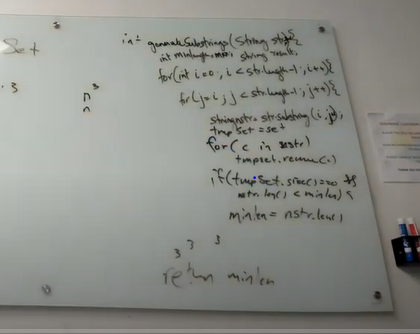 Set
int generateSubstrings(String str){
int minlength=max; string result;
for(int i=0; i<str.length-1; i++){
for(j=i; j<str.length-1; j++){
string nstr=str.substring(i,j);
tmpSet=set
for(c in nstr)
tmpset.remove(c)
if(tmpSet.size()==0 &&
nstr.len() < minlen) {
minlen = nstr.len()
}
}
}
return minlen
n
n